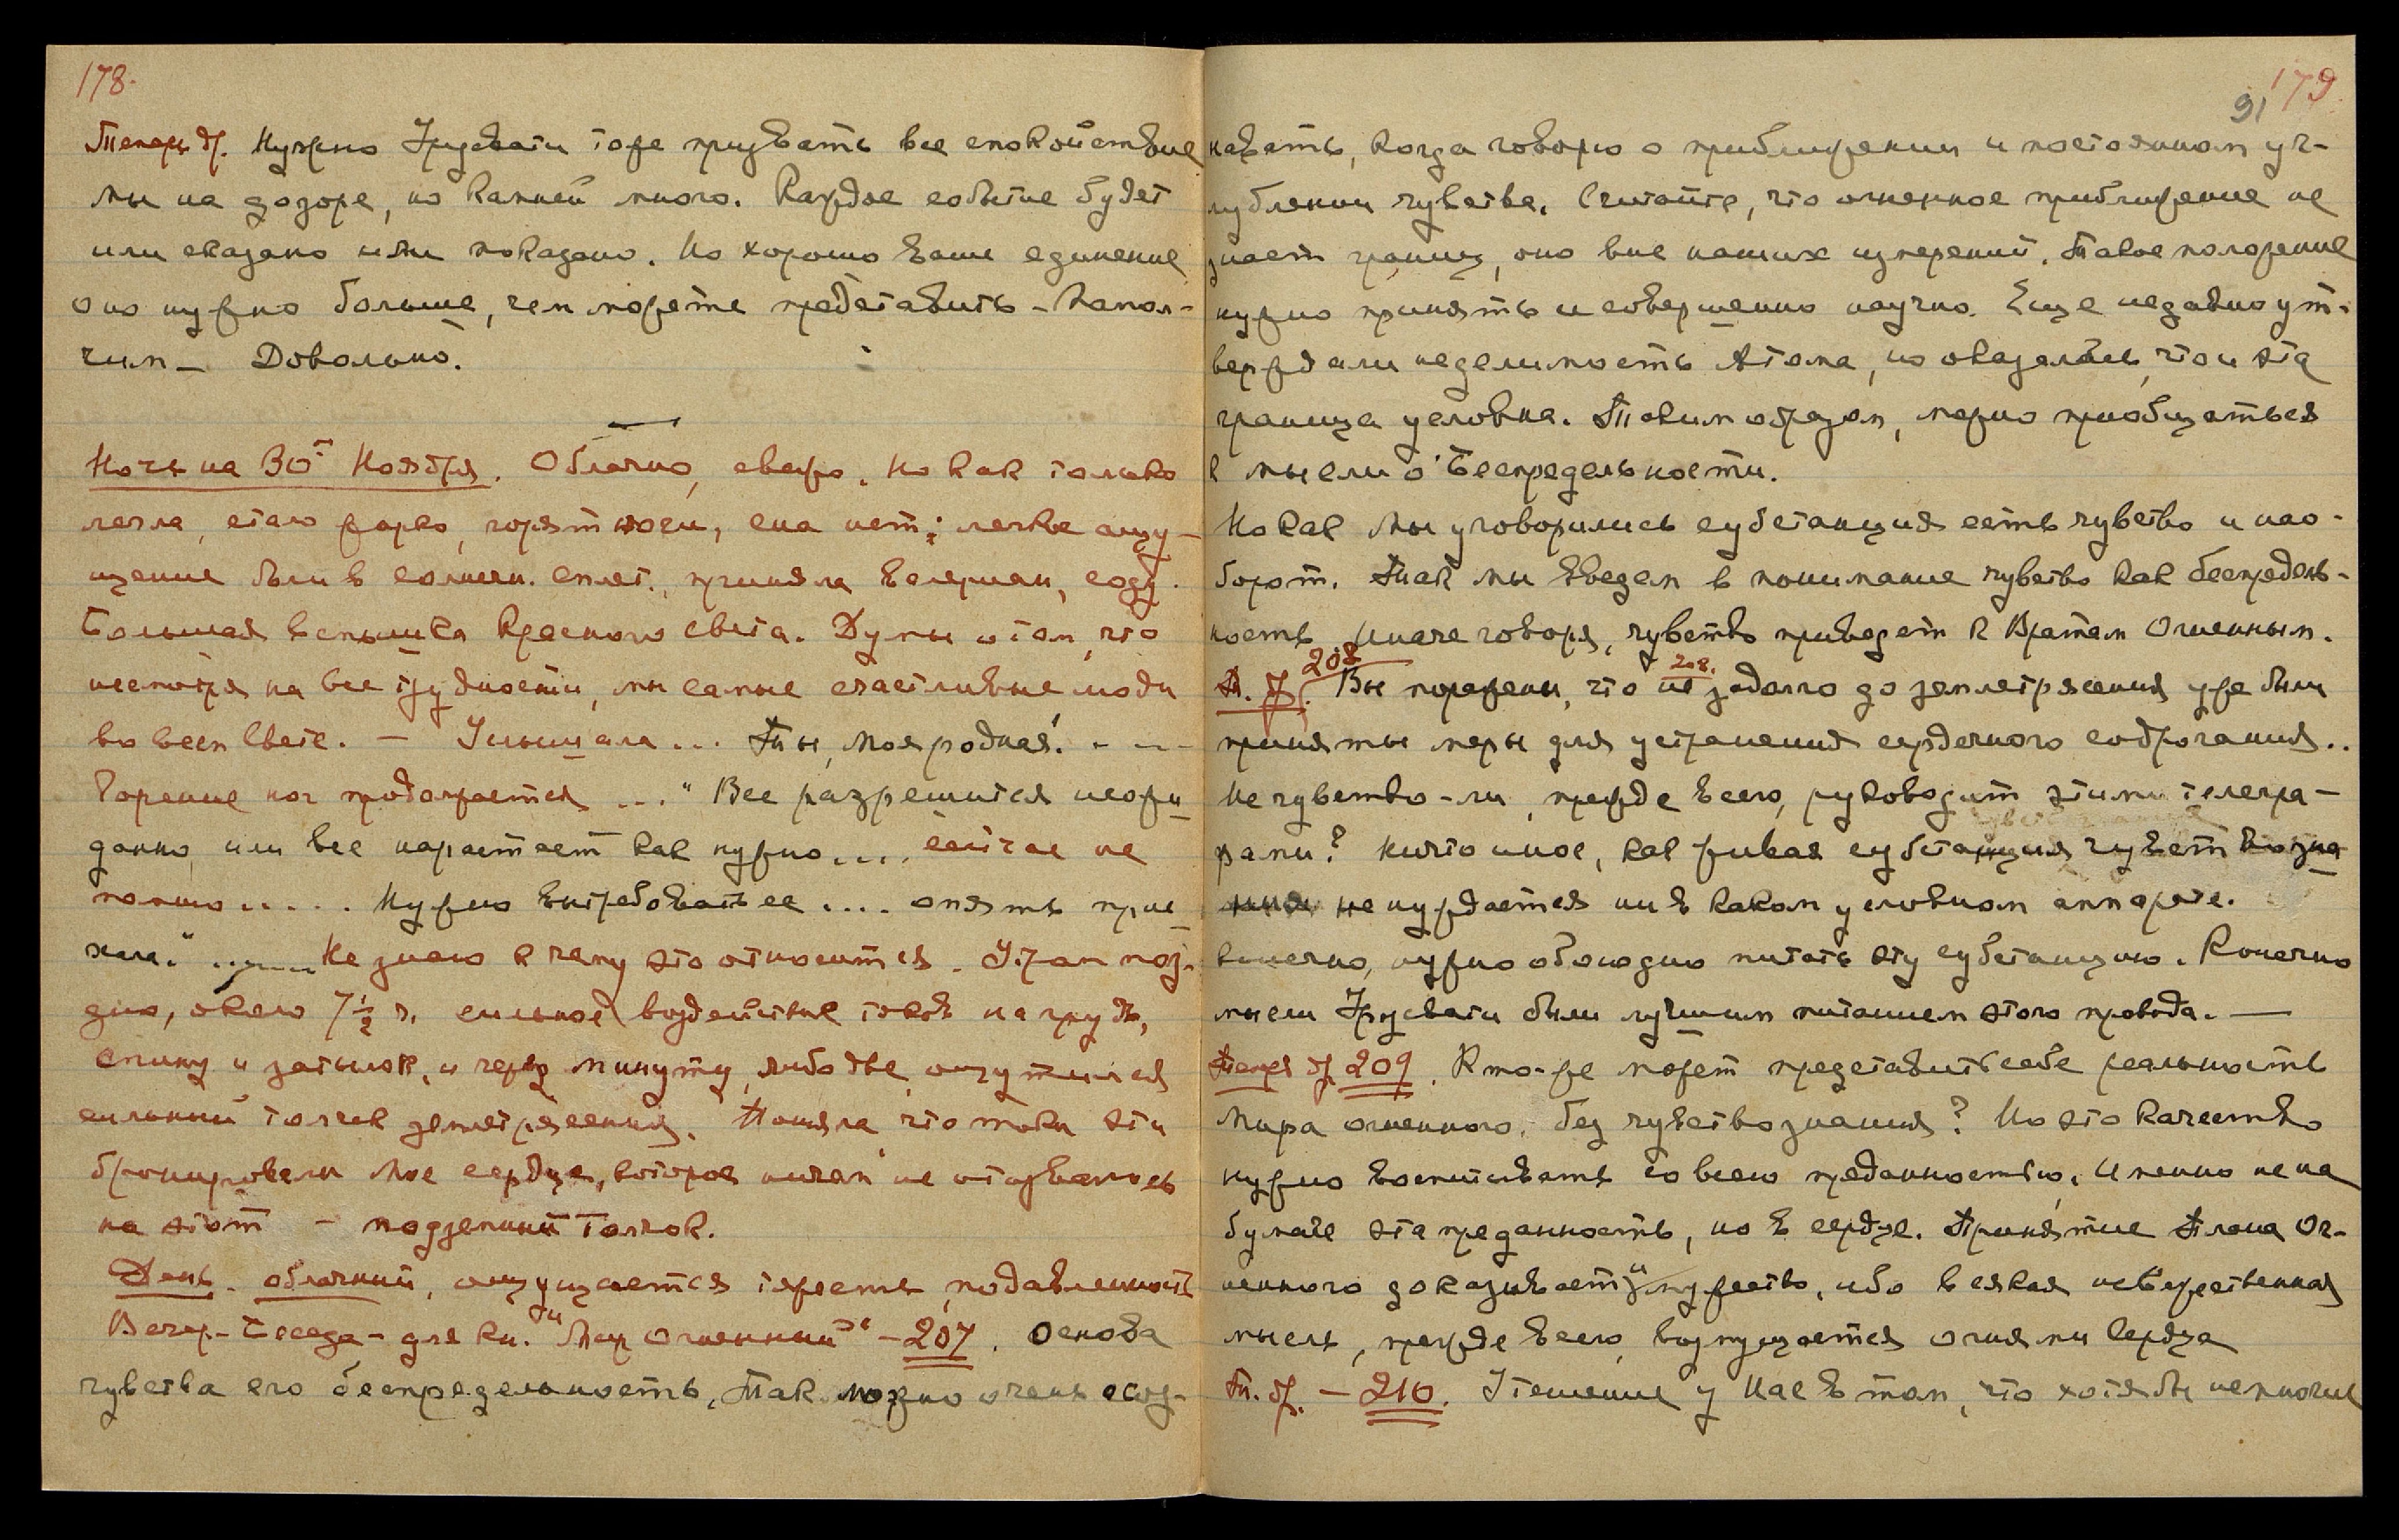 178.
Теперь др. Нужно Урусвати тоже призвать все спокойствие
мы на дозоре, но камней много. Каждое событие будет
или сказано или показано. Но хорошо ваше единение
оно нужно больше, чем можете представить – Намол-
чим – Довольно.
Ночь на 30ое Ноября. Облачно, свежо. Но как только
легла, стало жарко, горят ноги, сна нет; легкие ощу-
щения были в солнечн. сплет., приняла валериан, соду.
Большая вспышка красного света. Думы о том, что
несмотря на все трудности, мы самые счастливые люди
во всем свете. – Услышала... Ты, моя родная. - - -
Горение ног продолжается ... "Все разрешится неожи-
данно, или все нарастает как нужно.... сейчас не
помню..... Нужно вытребовать ее .... опять прие-
хала." ...... Не знаю к чему это относится. Утром позд-
но, около 7½ ч. сильное воздействие токов на грудь,
спину и затылок, и через минуту, либо две, ощутился
сильный толчек землетрясения. Поняла что токи эти
бронировали мое сердце, которое ничем не отозвалось
на этот – подземный толчок.
День. облачный, ощущается тяжесть, подавленность
Вечер – Беседа – для кн. "Мир Огненный" – 207. Основа
чувства его беспредельность. Так можно очень осоз-
179
91
навать, когда говорю о приближении и постоянном уг-
лублении чувства. Считайте, что огненное приближение не
знает границ, оно вне наших измерений. Такое положение
нужно принять и совершенно научно. Еще недавно ут-
верждали неделимость Атома, но оказалось, что и эта
граница условна. Таким образом, можно приобщаться
к мысли о Беспредельности.
Но как мы уговорились субстанция есть чувство и нао-
борот. Так мы введем в понимание чувство как беспредель-
ность. Иначе говоря, чувство приведет к Вратам Огненным.
208
208.
Т. др. Вы поражены, что не задолго до землетрясения уже были
приняты меры для устранения сердечного содрогания..
Не чувство-ли, прежде всего, руководит этими телегра-
фами? Ничто иное, как живая субстанция чувствозна-
ния не нуждается ни в каком условном аппарате.
Конечно, нужно обоюдно питать эту субстанцию. Конечно
мысли Урусвати были лучшим питанием этого провода. —
Теперь др. 209. Кто-же может представить себе реальность
Мира огненного, без чувствознания? Но это качество
нужно воспитывать со всею преданностью. Именно не на
бумаге эта преданность, но в сердце. Принятие Плана Ог-
ненного доказывает и мужество, ибо всякая невежественная
мысль, прежде всего, возмущается огнями Сердца
Т. др. – 210. Утешение у Нас в том, что хотя бы немногие